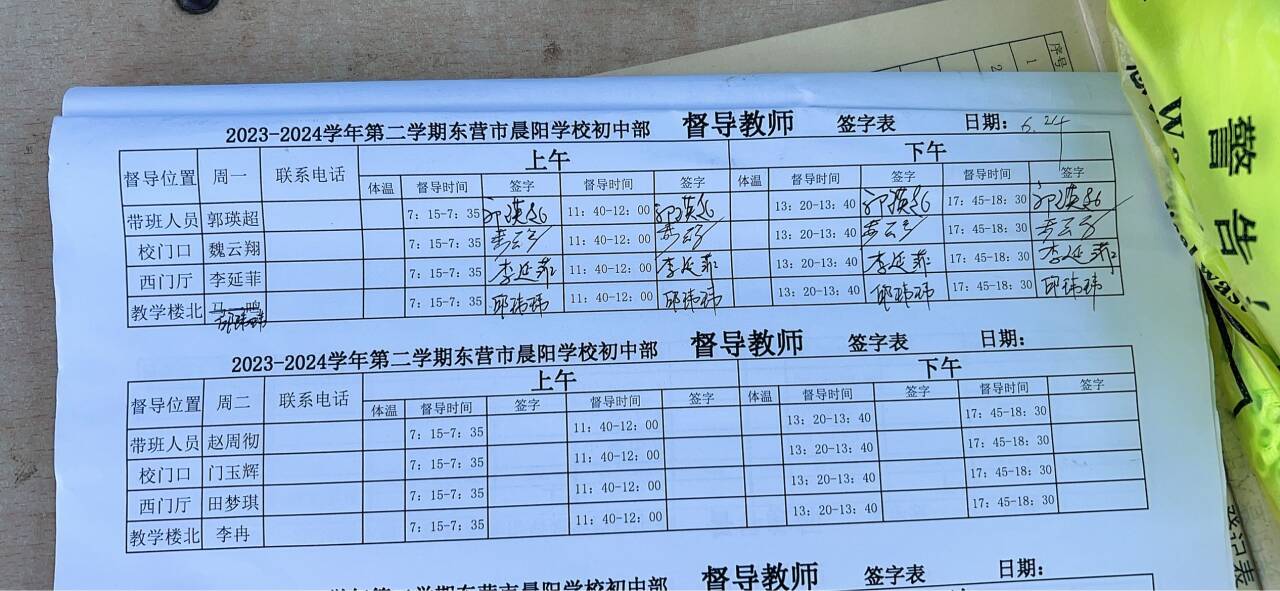 2023-2024学年第二学期东营市晨阳学校初中部 督导教师 签字表 日期: 6.24
督导位置 周一 联系电话 上午 下午
体温 督导时间 签字 督导时间 签字 体温 督导时间 签字 督导时间 签字
带班人员 郭瑛超 7: 15-7: 35 郭瑛超 11: 40-12: 00 郭瑛超 13: 20-13: 40 郭瑛超 17: 45-18: 30 郭瑛超
校门口 魏云翔 7: 15-7: 35 11: 40-12: 00 13: 20-13: 40 17: 45-18: 30
西门厅 李延菲 7: 15-7: 35 李延菲 11: 40-12: 00 李延菲 13: 20-13: 40 李延菲 17: 45-18: 30 李延菲
教学楼北 马一鸣 7: 15-7: 35 邱玮玮 11: 40-12: 00 邱玮玮 13: 20-13: 40 邱玮玮 17: 45-18: 30 邱玮玮
邱玮玮
2023-2024学年第二学期东营市晨阳学校初中部 督导教师 签字表 日期:
督导位置 周二 联系电话 上午 下午
体温 督导时间 签字 督导时间 签字 体温 督导时间 签字 督导时间 签字
带班人员 赵周彻 7: 15-7: 35 11: 40-12: 00 13: 20-13: 40 17: 45-18: 30
校门口 门玉辉 7: 15-7: 35 11: 40-12: 00 13: 20-13: 40 17: 45-18: 30
西门厅 田梦琪 7: 15-7: 35 11: 40-12: 00 13: 20-13: 40 17: 45-18: 30
教学楼北 李冉 7: 15-7: 35 11: 40-12: 00 13: 20-13: 40 17: 45-18: 30
学年第二学期东营市晨阳学校初中部 督导教师 签字表 日期:
序号
1
2
警告